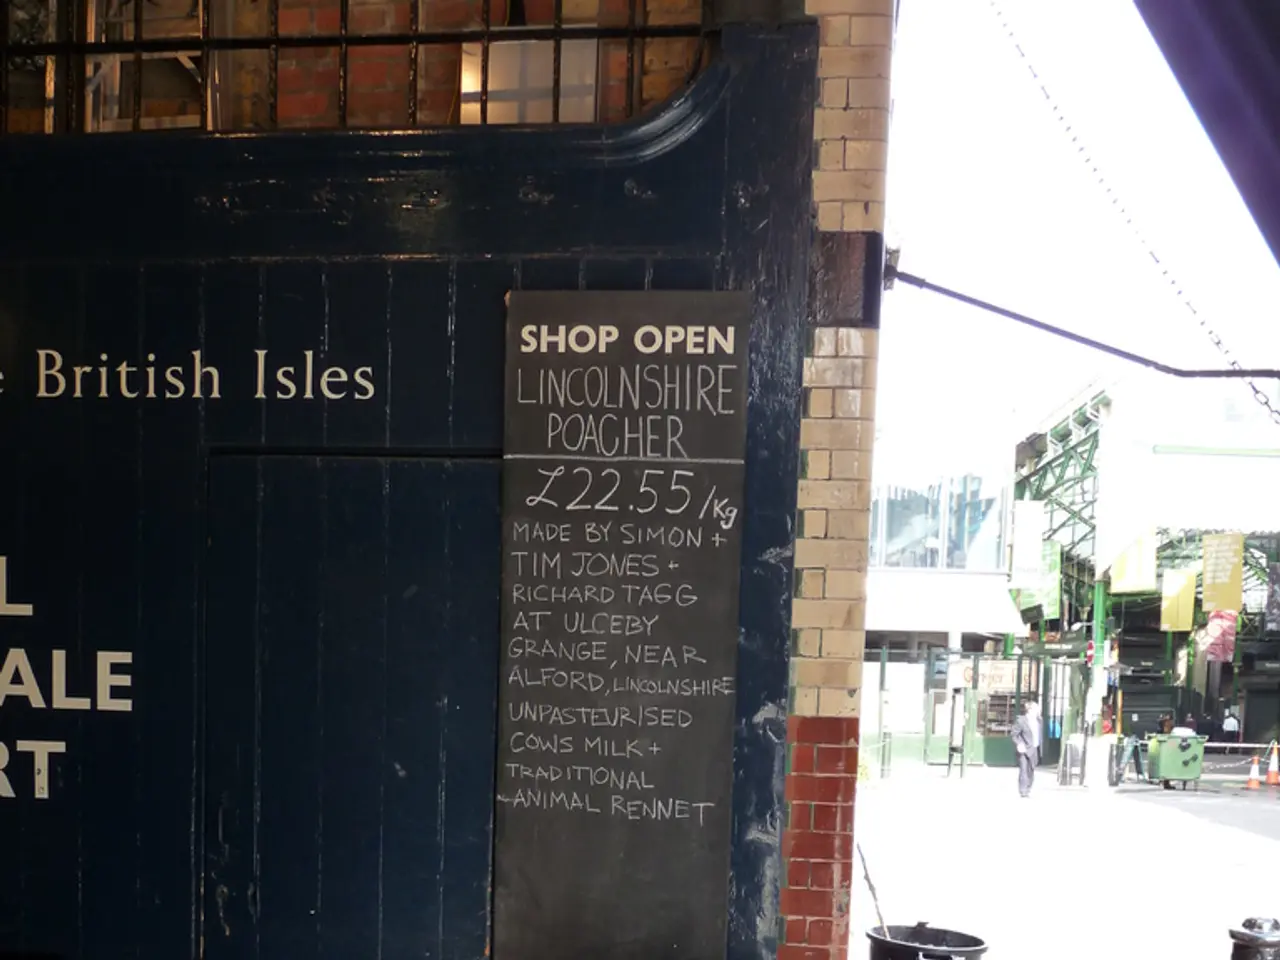 British Isles
L
ALE
RT
SHOP OPEN
LINCOLNSHIRE
POACHER
£22.55/Kg
MADE BY SIMON +
TIM JONES +
RICHARD TAGG
AT ULCEBY
GRANGE, NEAR
ALFORD, LINCOLNSHIRE
UNPASTEURISED
COWS MILK +
TRADITIONAL
ANIMAL RENNET